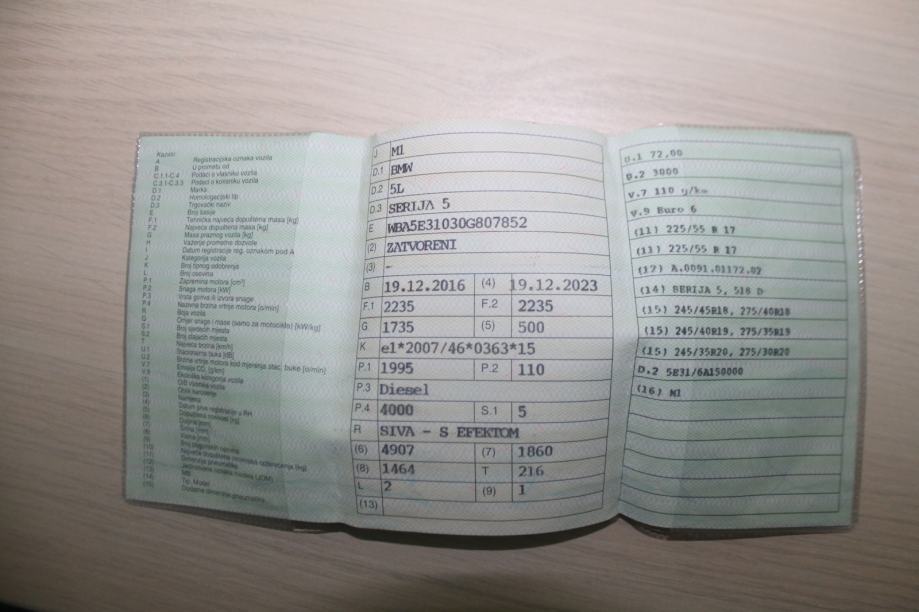 Kazalo:
A Registracijska oznaka vozila
B U prometu od
C.1.1-C.4 Podaci o vlasniku vozila
C.3.1-C.3.3 Podaci o korisniku vozila
D.1 Marka
D.2 Homologacijski tip
D.3 Trgovački naziv
E Broj šasije
F.1 Tehnička najveća dopuštena masa [kg]
F.2 Najveća dopuštena masa [kg]
G Masa praznog vozila [kg]
H Važenje prometne dozvole
I Datum registracije reg. oznakom pod A
J Kategorija vozila
K Broj tipnog odobrenja
L Broj osovina
P.1 Zapremina motora [cm³]
P.2 Snaga motora [kW]
P.3 Vrsta goriva ili izvora snage
P.4 Nazivna brzina vrtnje motora [o/min]
R Boja vozila
Q Omjer snage i mase (samo za motocikle) [kW/kg]
S.1 Broj sjedećih mjesta
S.2 Broj stajaćih mjesta
T Najveća brzina [km/h]
U.1 Stacionarna buka [dB]
U.2 Brzina vrtnje motora kod mjerenja stac. buke [o/min]
V.7 Emisija CO₂ [g/km]
V.9 Ekološka kategorija vozila
(4) Datum prve registracije u RH
J M1
D.1 BMW
D.2 5L
D.3 SERIJA 5
E WBA5E31030G807852
(2) ZATVORENI
(3) -
B 19.12.2016 (4) 19.12.2023
F.1 2235 F.2 2235
G 1735 (5) 500
K e1*2007/46*0363*15
P.1 1995 P.2 110
P.3 Diesel
P.4 4000 S.1 5
R SIVA - S EFEKTOM
(6) 4907 (7) 1860
(8) 1464 T 216
L 2 (9) 1
(13)
U.1 72,00
U.2 3000
V.7 110 g/km
V.9 Euro 6
(11) 225/55 R 17
(11) 225/55 R 17
(12) A.0091.01172.02
(14) SERIJA 5, 518 D
(15) 245/45R18, 275/40R18
(15) 245/40R19, 275/35R19
(15) 245/35R20, 275/30R20
D.2 5E31/6A150000
(16) M1